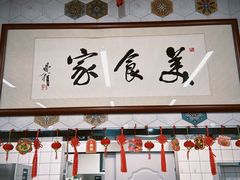 美食家